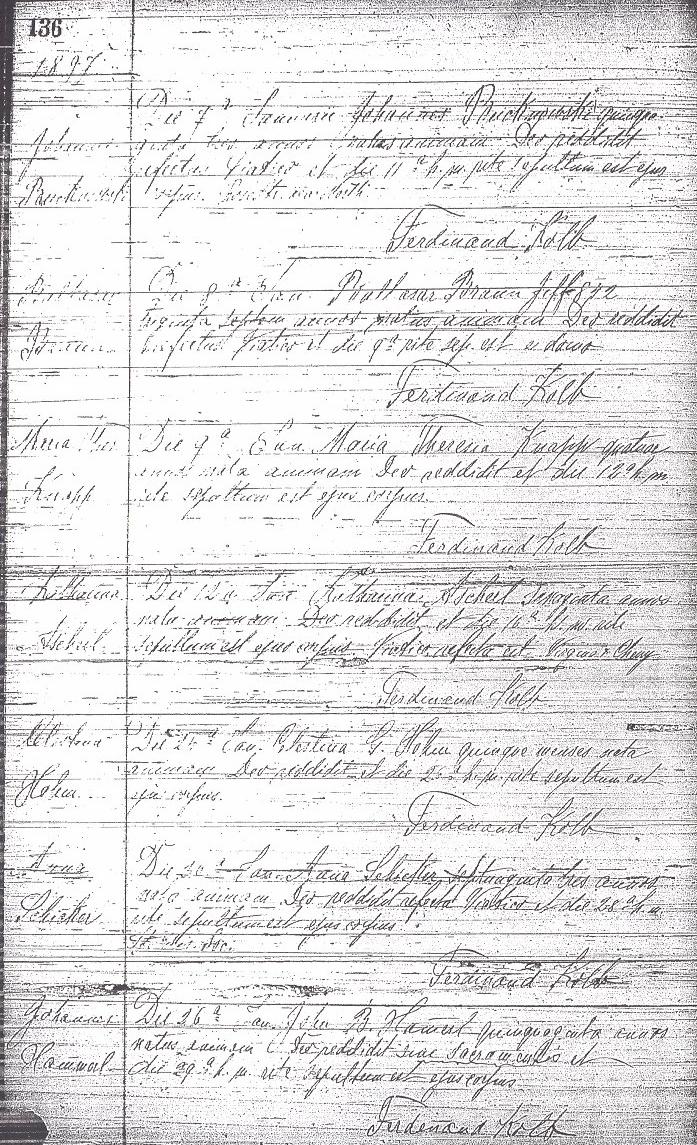 136
1897
Die 7ª Januarii Johannes Ruckowski quinqua-
Johannes
ginta tres annos natus animam Deo reddidit
refectus Viatico et die 11ª h. m. rite sepultum est ejus
Ruckowski
corpus.
Ferdinand Kolb
Balthasar
Die 8ª Jan. Balthasar Braun
triginta septem annos natus animam Deo reddidit
Braun
refectus Viatico et die 9ª rite sep. est
Ferdinand Kolb
Maria Ther
Die 9ª Jan. Maria Theresia Knapp quatuor
annos nata animam Deo reddidit et die 12ª h. m.
Knapp
rite sepultum est ejus corpus.
Ferdinand Kolb
Katharina
Die 12ª Jan Katharina Ascherl annos
nata animam Deo reddidit et die h. m. rite
Ascherl
sepultum est ejus corpus. Viatico refecta est
Ferdinand Kolb
Die 24ª Jan. G. Hohm quinque menses nata
animam Deo reddidit et die h. m. rite sepultum est
Hohm
ejus corpus.
Ferdinand Kolb
Anna
Die Jan. Anna Schieker septuaginta tres annos
nata animam Deo reddidit refecta Viatico et die 28ª h. m.
Schieker
rite sepultum est ejus corpus.
Ferdinand Kolb
Johannes
Die 26ª Jan. John B. Hammerl quinquaginta annos
natus animam Deo reddidit sine sacramentis et
Hammerl
die 29ª h. m. rite sepultum est ejus corpus
Ferdinand Kolb